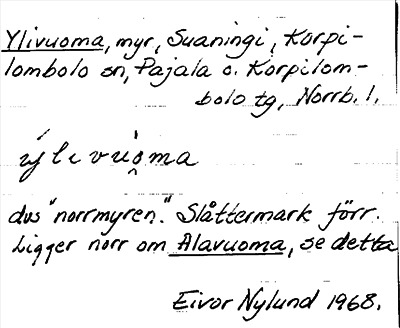 Ylivuoma, myr, Suaningi, Korpi-
lombolo sn, Pajala o. Korpilom-
bolo tg, Norrb. l.
ýlevu̯òma
dvs "norrmyren". Slåttermark förr.
Ligger norr om Alavuoma, se detta
Eivor Nylund 1968.